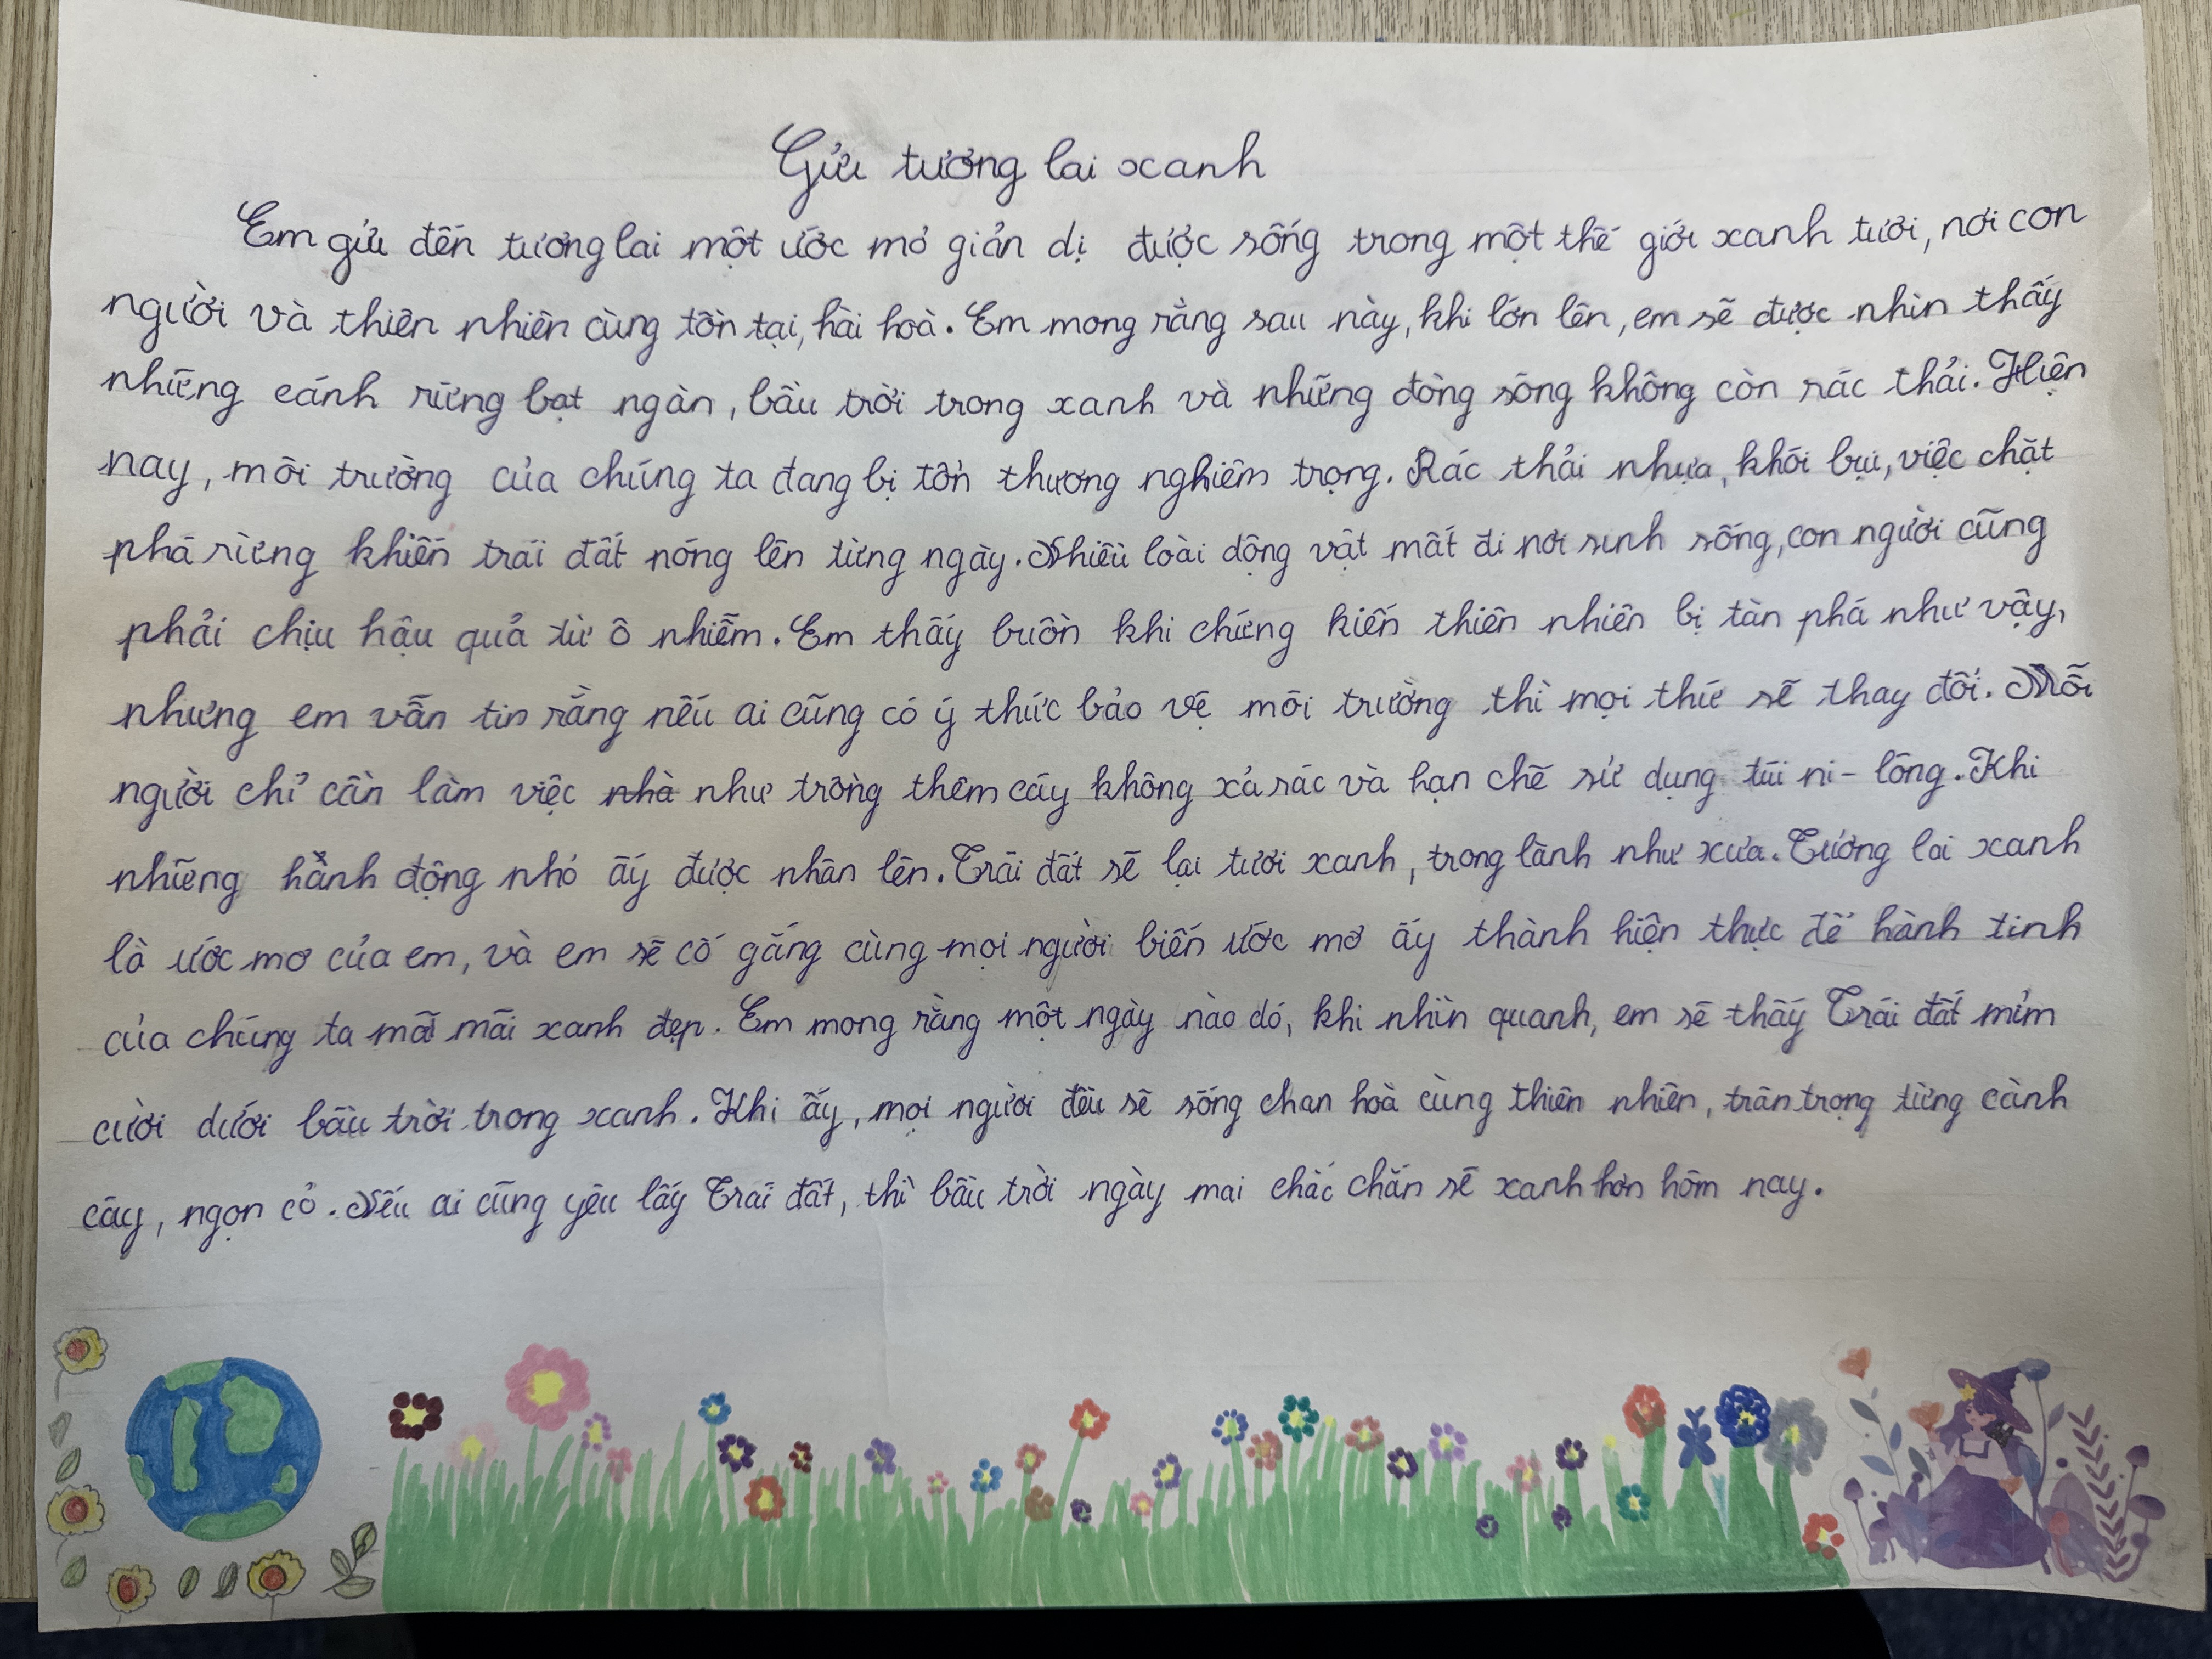 Gửi tương lai xanh
Em gửi đến tương lai một ước mơ giản dị được sống trong một thế giới xanh tươi, nơi con
người và thiên nhiên cùng tồn tại, hài hoà. Em mong rằng sau này, khi lớn lên, em sẽ được nhìn thấy
những cánh rừng bạt ngàn, bầu trời trong xanh và những dòng sông không còn rác thải. Hiện
nay, môi trường của chúng ta đang bị tổn thương nghiêm trọng. Rác thải nhựa, khói bụi, việc chặt
phá rừng khiến trái đất nóng lên từng ngày. Nhiều loài động vật mất đi nơi sinh sống, con người cũng
phải chịu hậu quả từ ô nhiễm. Em thấy buồn khi chứng kiến thiên nhiên bị tàn phá như vậy,
nhưng em vẫn tin rằng nếu ai cũng có ý thức bảo vệ môi trường thì mọi thứ sẽ thay đổi. Mỗi
người chỉ cần làm việc nhà như trồng thêm cây không xả rác và hạn chế sử dụng túi ni-lông. Khi
những hành động nhỏ ấy được nhân lên. Trái đất sẽ lại tươi xanh, trong lành như xưa. Tương lai xanh
là ước mơ của em, và em sẽ cố gắng cùng mọi người biến ước mơ ấy thành hiện thực để hành tinh
của chúng ta mãi mãi xanh đẹp. Em mong rằng một ngày nào đó, khi nhìn quanh, em sẽ thấy Trái đất mỉm
cười dưới bầu trời trong xanh. Khi ấy, mọi người đều sẽ sống chan hoà cùng thiên nhiên, trân trọng từng cành
cây, ngọn cỏ. Nếu ai cũng yêu lấy Trái đất, thì bầu trời ngày mai chắc chắn sẽ xanh hơn hôm nay.